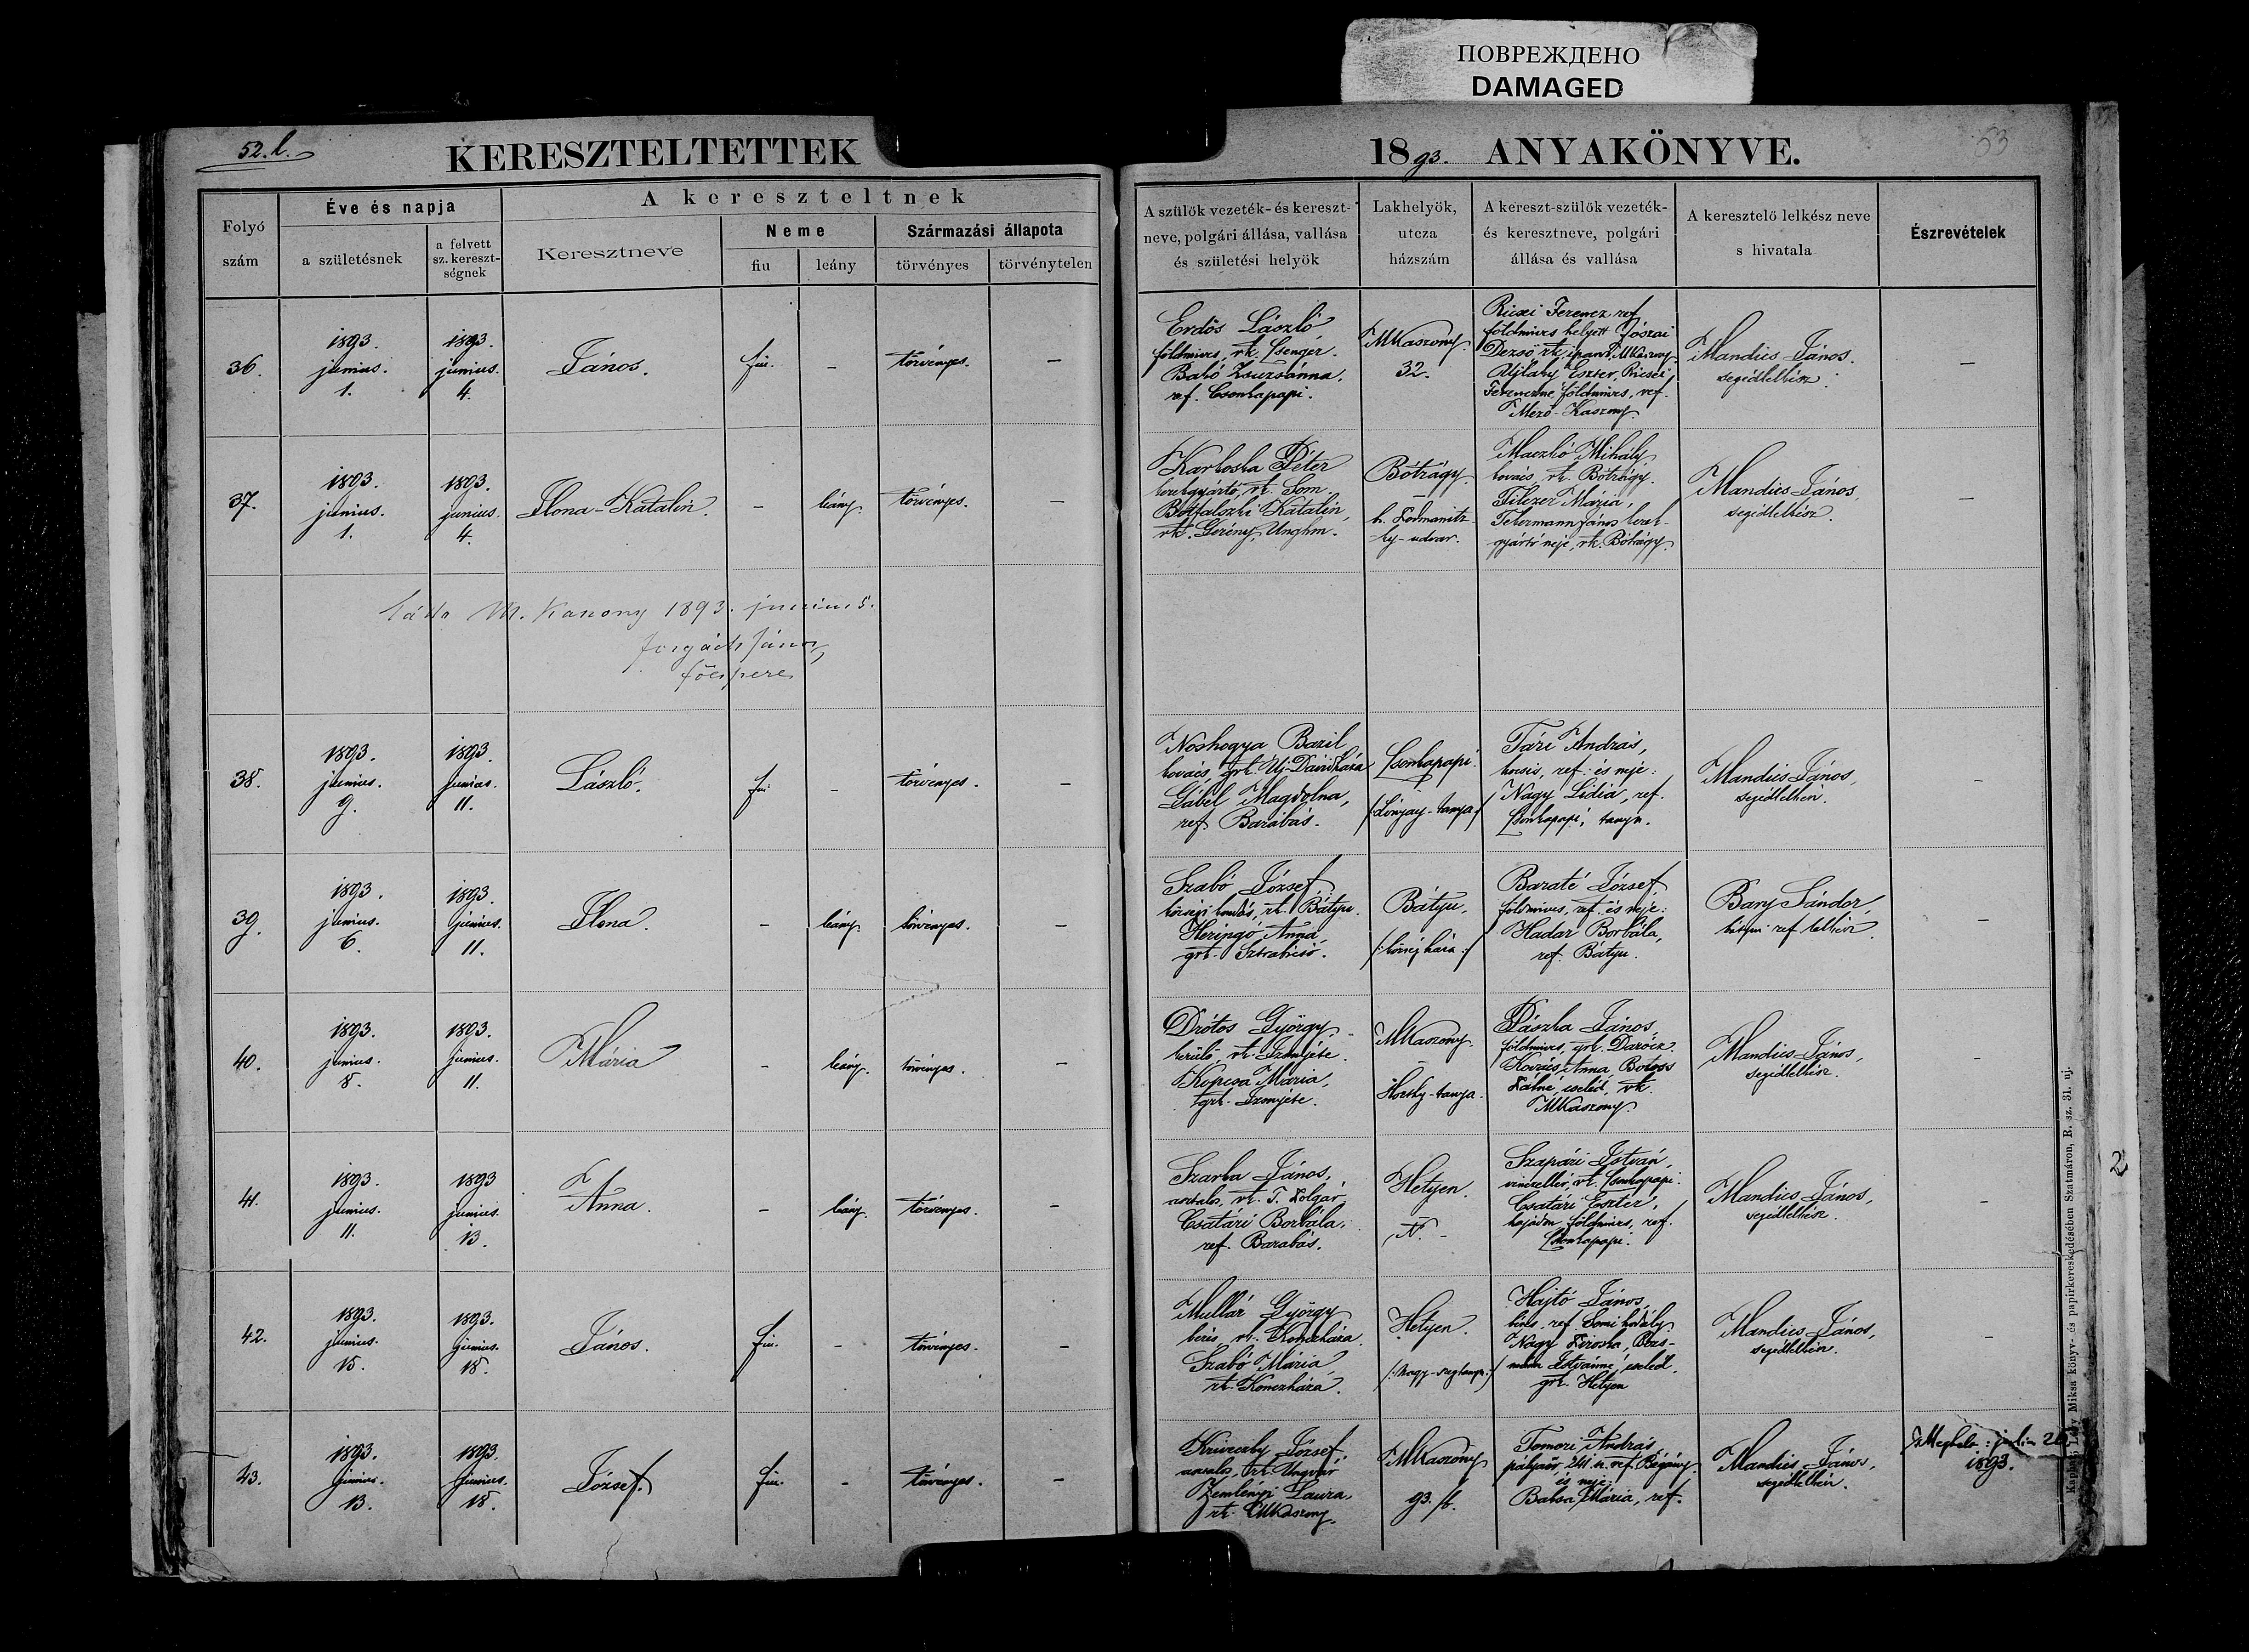 ПОВРЕЖДЕНО
DAMAGED
52. l.
KERESZTELTETTEK
1893. ANYAKÖNYVE.
53
Folyó szám
Éve és napja
a születésnek
a felvett sz. kereszt-ségnek
A kereszteltnek
Keresztneve
Neme
fiu
leány
Származási állapota
törvényes
törvénytelen
A szülök vezeték- és kereszt-
neve, polgári állása, vallása
és születési helyök
Lakhelyök,
utcza
házszám
A kereszt-szülök vezeték-
és keresztneve, polgári
állása és vallása
A keresztelő lelkész neve
s hivatala
Észrevételek
36.
1893.
junius.
1.
1893.
junius.
4.
János.
fiu.
-
törvényes.
-
Erdős László
földmives, rk. Csengér.
Babó Zsuzsánna,
ref. Csonkapapi.
MKaszony.
32.
Ricsei Ferencz ref.
földmives helyett Jószai
Dezső rk. iparos, MKaszony
Ujlaky Eszter, Ricsei
Ferenczné földmives, ref.
Mező-Kaszony.
Mandics János.
segédlelkész.
-
37.
1893.
junius.
1.
1893.
junius.
4.
Ilona-Katalin.
-
leány.
törvényes.
-
Karboska Péter
kerékgyártó, rk. Som.
Katalin,
rk. Gerény, Unghm.
Bótrágy.
-udvar.
Maczkó Mihály
kovács, rk. Bótrágy.
Filczer Mária,
János kerék-
gyártó neje, rk. Bótrágy.
Mandics János,
segédlelkész.
-
Látta M. Kaszony 1893. junius 5.
Forgách János
főesperes
38.
1893.
junius.
9.
1893.
junius.
11.
László.
fiu
-
törvényes.
-
Noshogya Bazil
kovács, grk. Uj-Dávidháza
Gábel Magdolna,
ref. Barabás.
Csonkapapi.
/:Lónyay-tanya:/
Tári András,
kocsis, ref. és neje:
Nagy Lidia, ref.
Csonkapapi, tanya.
Mandics János,
segédlelkész.
39.
1893.
junius.
6.
1893.
junius.
11.
Ilona.
-
leány.
törvényes.
-
Szabó József
községi kondás, rk. Bátyu.
Heringó Anna
grk. Sztrabicsó.
Bátyu.
/:község háza:/
Baraté József
földmives, ref. és neje:
Hadar Borbála,
ref. Bátyu.
Bary Sándor,
bátyui ref. lelkész.
-
40.
1893.
junius.
8.
1893.
junius.
11.
Mária
-
leány.
törvényes.
-
Drótos György
kerülő, rk. Izsnyéte.
Kopcsa Mária,
grk. Izsnyéte.
MKaszony.
-
Horthy-tanya.
Pászka János,
földmives, grk. Darócz.
Kovács Anna, Botoss
Kálné, cseléd, rk.
MKaszony.
Mandics János,
segédlelkész.
-
41.
1893.
junius.
11.
1893
junius.
13.
Anna.
-
leány.
törvényes.
-
Szarka János,
asztalos, rk. T. Polgár,
Csatári Borbála,
ref. Barabás.
Hetyen.
Szapári István,
vinczellér, rk. Csonkapapi.
Csatári Eszter,
hajadon földmives, ref.
Csonkapapi.
Mandics János,
segédlelkész.
-
42.
1893.
junius.
15.
1893.
junius.
18.
János.
fiu.
-
törvényes.
-
Mullár György
béres, rk. Konczháza.
Szabó Mária,
rk. Konczháza.
Hetyen.
Hajtó János,
béres, ref.
Nagy Piroska,
Istvánné, cseléd.
grk. Hetyen
Mandics János,
segédlelkész.
-
43.
1893.
junius.
13.
1893.
junius.
18.
József.
fiu.
-
törvényes.
-
Kriveczky József
asztalos, rk. Ungvár
Zemlényi Laura,
rk. MKaszony.
MKaszony
93. /b.
Tomori András
pályaőr 241. sz. ref. Bégány.
és neje:
Babsa Mária, ref.
Mandics János,
segédlelkész.
Meghalt: 26.
1893.
2
Kapható Lőwy Miksa könyv- és papirkereskedésében Szatmáron, R. sz. 31. uj.